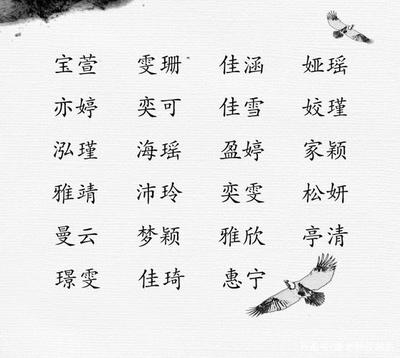 宝萱 雯珊 佳涵 娅瑶
亦婷 奕可 佳雪 姣瑾
泓瑾 海瑶 盈婷 家颖
雅靖 沛玲 奕雯 松妍
曼云 梦颖 雅欣 亭清
璟雯 佳琦 惠宁